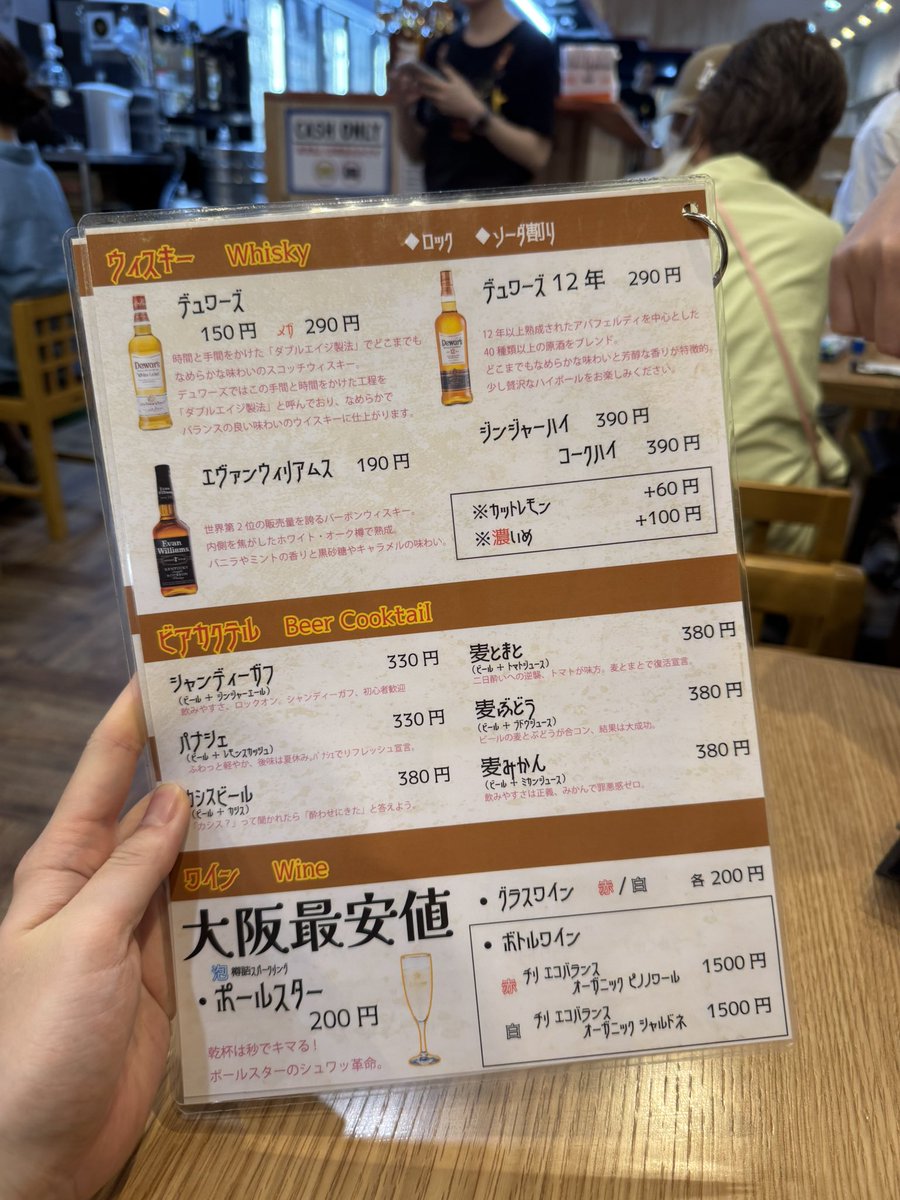 CASH ONLY
ウィスキー Whisky ◆ロック ◆ソーダ割り
デュワーズ
150円 メガ 290円
時間と手間をかけた「ダブルエイジ製法」でどこまでも
なめらかな味わいのスコッチウィスキー。
デュワーズではこの手間と時間をかけた工程を
「ダブルエイジ製法」と呼んでおり、なめらかで
バランスの良い味わいのウイスキーに仕上がります。
Dewar's
デュワーズ12年 290円
12年以上熟成されたアバフェルディを中心とした
40種類以上の原酒をブレンド。
どこまでもなめらかな味わいと芳醇な香りが特徴的。
少し贅沢なハイボールをお楽しみください。
Dewar's
エヴァンウィリアムス 190円
世界第2位の販売量を誇るバーボンウィスキー。
内側を焦がしたホワイト・オーク樽で熟成。
バニラやミントの香りと黒砂糖やキャラメルの味わい。
Evan
Williams
ジンジャーハイ 390円
コークハイ 390円
※カットレモン +60円
※濃いめ +100円
ビアカクテル Beer Cooktail
シャンディーガフ 330円
(ビール + ジンジャーエール)
飲みやすさ、ロックオン、シャンディーガフ、初心者歓迎
パナシェ 330円
(ビール + レモンスカッシュ)
ふわっと軽やか、後味は夏休み。パナシェでリフレッシュ宣言。
カシスビール 380円
(ビール + カシス)
「カシス?」って聞かれたら「酔わせにきた」と答えよう。
麦とまと 380円
(ビール + トマトジュース)
二日酔いへの逆襲、トマトが味方。麦とまとで復活宣言。
麦ぶどう 380円
(ビール + ブドウジュース)
ビールの麦とぶどうが合コン、結果は大成功。
麦みかん 380円
(ビール + ミカンジュース)
飲みやすさは正義、みかんで罪悪感ゼロ。
ワイン Wine
大阪最安値
泡 樽詰スパークリング
・ポールスター
200円
乾杯は秒でキマる!
ポールスターのシュワッ革命。
• グラスワイン 赤 / 白 各200円
• ボトルワイン
赤 チリ エコバランス
オーガニック ピノノワール 1500円
白 チリ エコバランス
オーガニック シャルドネ 1500円